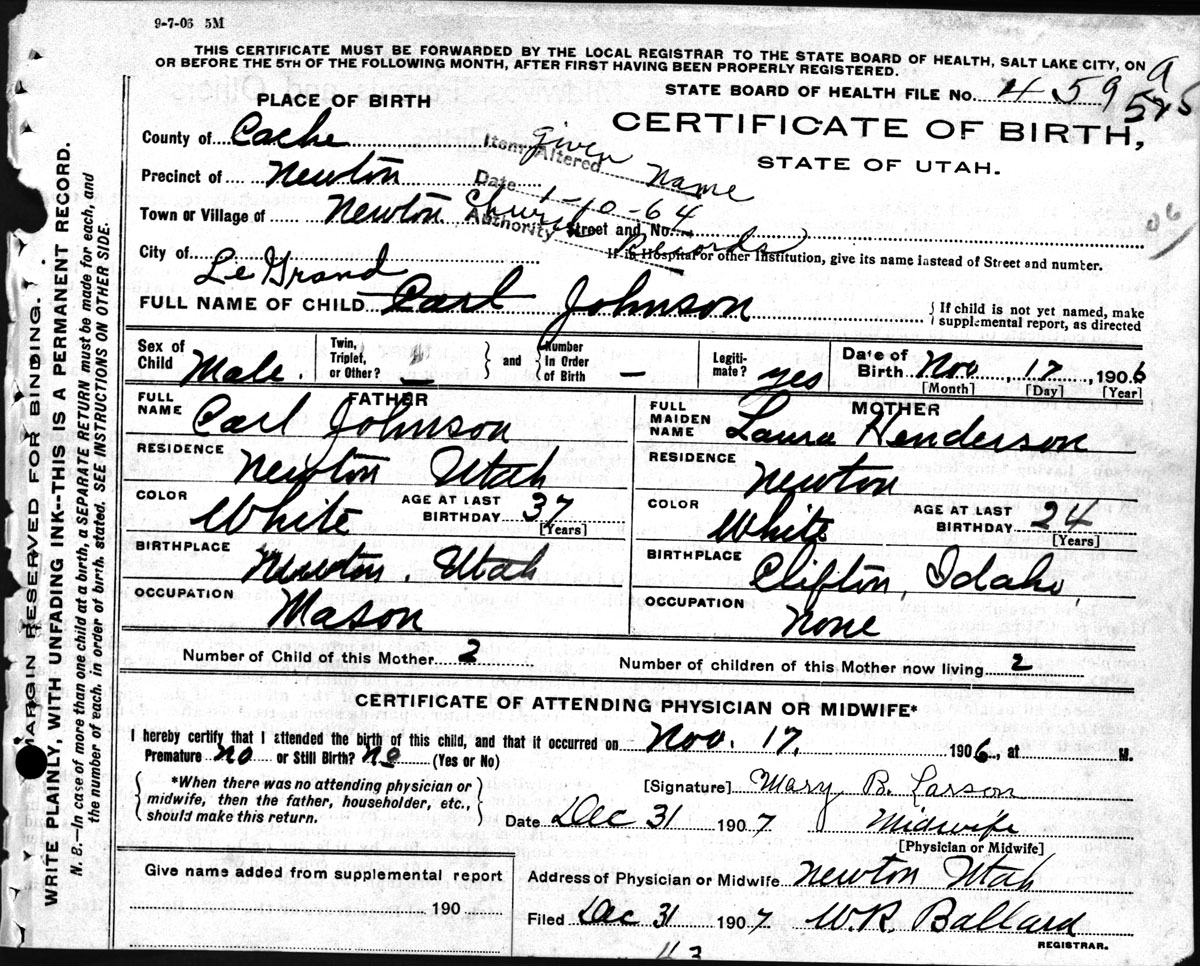 9-7-06 5M
THIS CERTIFICATE MUST BE FORWARDED BY THE LOCAL REGISTRAR TO THE STATE BOARD OF HEALTH, SALT LAKE CITY, ON
OR BEFORE THE 5TH OF THE FOLLOWING MONTH, AFTER FIRST HAVING BEEN PROPERLY REGISTERED.
STATE BOARD OF HEALTH FILE No. 459
PLACE OF BIRTH
CERTIFICATE OF BIRTH,
STATE OF UTAH.
County of Cache
Item Altered given name
Precinct of Newton
Date 1-10-64
Town or Village of Newton
Authority Church Records
Street and No.
City of
If in Hospital or other Institution, give its name instead of Street and number.
LeGrand
FULL NAME OF CHILD Carl Johnson
If child is not yet named, make
supplemental report, as directed
Sex of Child Male.
Twin, Triplet, or Other? —
and
Number In Order of Birth —
Legiti-mate? yes
Date of Birth Nov. 17, 1906
[Month] [Day] [Year]
FATHER
FULL NAME Carl Johnson
RESIDENCE Newton Utah
COLOR White
AGE AT LAST BIRTHDAY 37
[Years]
BIRTHPLACE Newton, Utah
OCCUPATION Mason
MOTHER
FULL MAIDEN NAME Laura Henderson
RESIDENCE Newton
COLOR White
AGE AT LAST BIRTHDAY 24
[Years]
BIRTHPLACE Clifton, Idaho,
OCCUPATION None
Number of Child of this Mother 2
Number of children of this Mother now living 2
CERTIFICATE OF ATTENDING PHYSICIAN OR MIDWIFE*
I hereby certify that I attended the birth of this child, and that it occurred on Nov. 17. 1906, at M.
Premature no or Still Birth? no (Yes or No)
*When there was no attending physician or
midwife, then the father, householder, etc.,
should make this return.
[Signature] Mary B. Larson
Date Dec 31 1907 Midwife
[Physician or Midwife]
Give name added from supplemental report
190
Address of Physician or Midwife Newton Utah
Filed Dec 31 1907 W.R. Ballard
REGISTRAR.
MARGIN RESERVED FOR BINDING.
WRITE PLAINLY, WITH UNFADING INK--THIS IS A PERMANENT RECORD.
N. B.—In case of more than one child at a birth, a SEPARATE RETURN must be made for each, and
the number of each, in order of birth, stated. SEE INSTRUCTIONS ON OTHER SIDE.